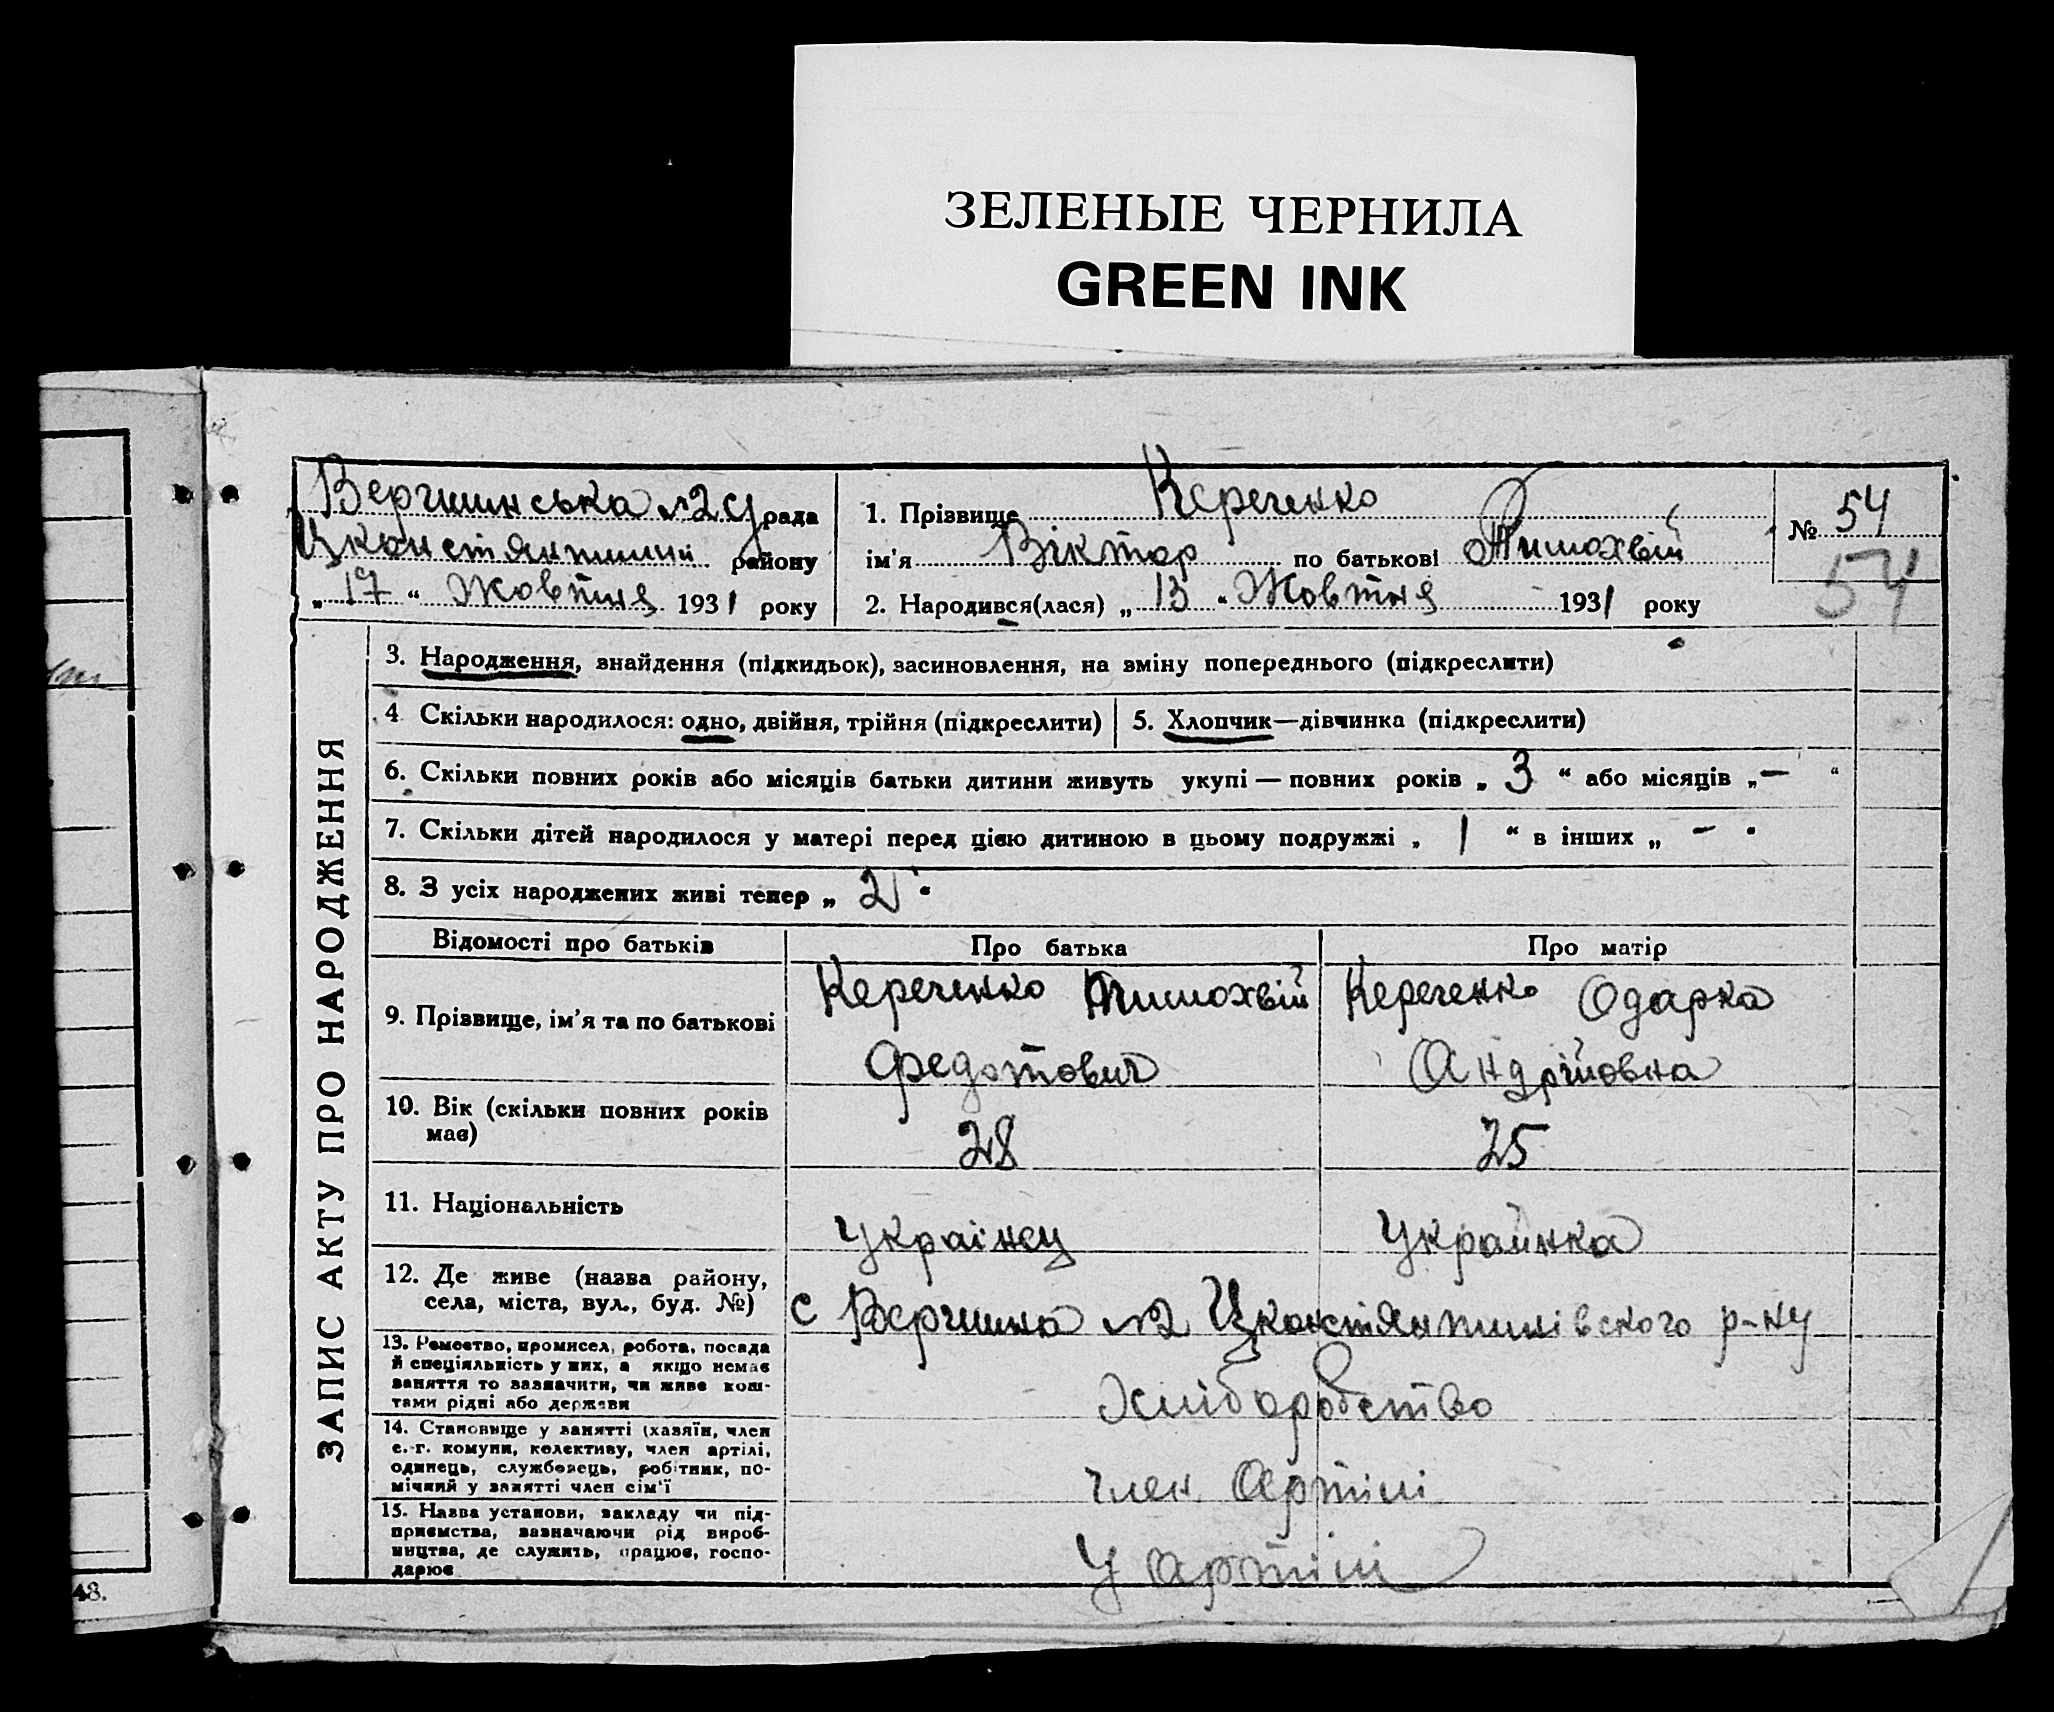 ЗЕЛЕНЫЕ ЧЕРНИЛА
GREEN INK
Вершинська №2 с/рада
Цконстянтинів району
„17“ Жовтня 1931 року
1. Прізвище Кереченко
ім'я Віктор по батькові Тимохвій
2. Народився(лася) „13“ Жовтня 1931 року
№ 54
54
ЗАПИС АКТУ ПРО НАРОДЖЕННЯ
3. Народження, знайдення (підкидьок), засиновлення, на зміну попереднього (підкреслити)
4 Скільки народилося: одно, двійня, трійня (підкреслити)
5. Хлопчик—дівчинка (підкреслити)
6. Скільки повних років або місяців батьки дитини живуть укупі — повних років „ 3 “ або місяців „—“
7. Скільки дітей народилося у матері перед цією дитиною в цьому подружжі „ 1 “ в інших „ — “
8. З усіх народжених живі тепер „ 2 “
Відомості про батьків
Про батька
Про матір
9. Прізвище, ім'я та по батькові
Кереченко Тимохвій
Федотович
Кереченко Одарка
Андрійовна
10. Вік (скільки повних років
має)
28
25
11. Національність
Українець
Українка
12. Де живе (назва району,
села, міста, вул., буд. №)
с Вершина №2 Цконстянтинівского р-ну
13. Ремество, промисел, робота, посада
й спеціяльність у них, а якщо немає
заняття то зазначити, чи живе кош-
тами рідні або держави
Хліборобство
14. Становище у занятті (хазяїн, член
с.-г. комуни, колективу, член артілі,
одинець, службовець, робітник, по-
мічний у занятті член сім'ї
член Артілі
15. Назва установи, закладу чи під-
приємства, зазначаючи рід вироб-
ництва, де служить, працює, госпо-
дарює
У артілі
48.